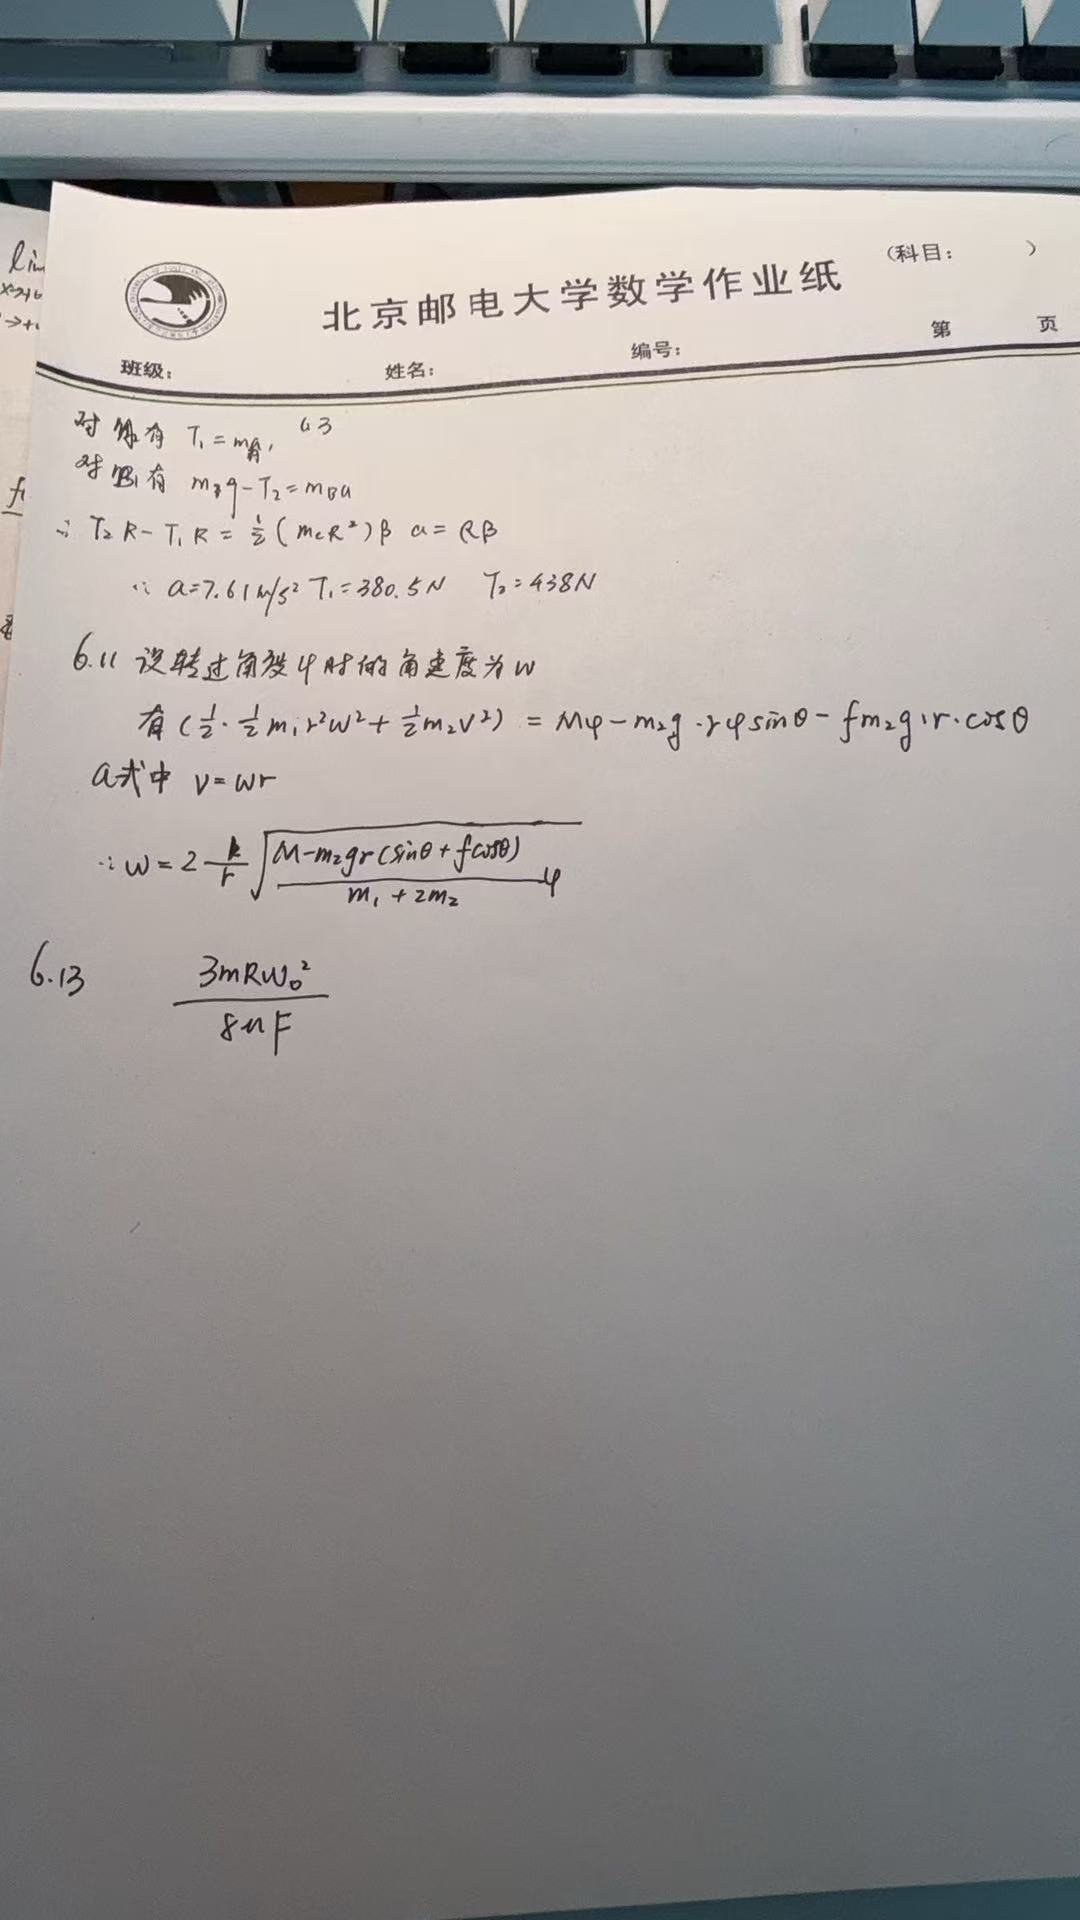 lim
(科目: )
北京邮电大学数学作业纸
第 页
班级: 姓名: 编号:
对 有 T₁=m ,
对 有 m_Bg-T₂=m_Ba
∴ T₂R-T₁R=½(m_cR²)β a=Rβ
∴ a=7.61m/s² T₁=380.5N T₂=438N
6.11 设转过角度φ时的角速度为w
有(½·½m₁r²w²+½m₂v²)=Mφ-m₂g·rφsinθ-fm₂g·r·cosθ
式中 v=wr
∴w=2 /r √((M-m₂gr(sinθ+fcosθ))/(m₁+2m₂) φ)
6.13 3mRw₀²/8μF